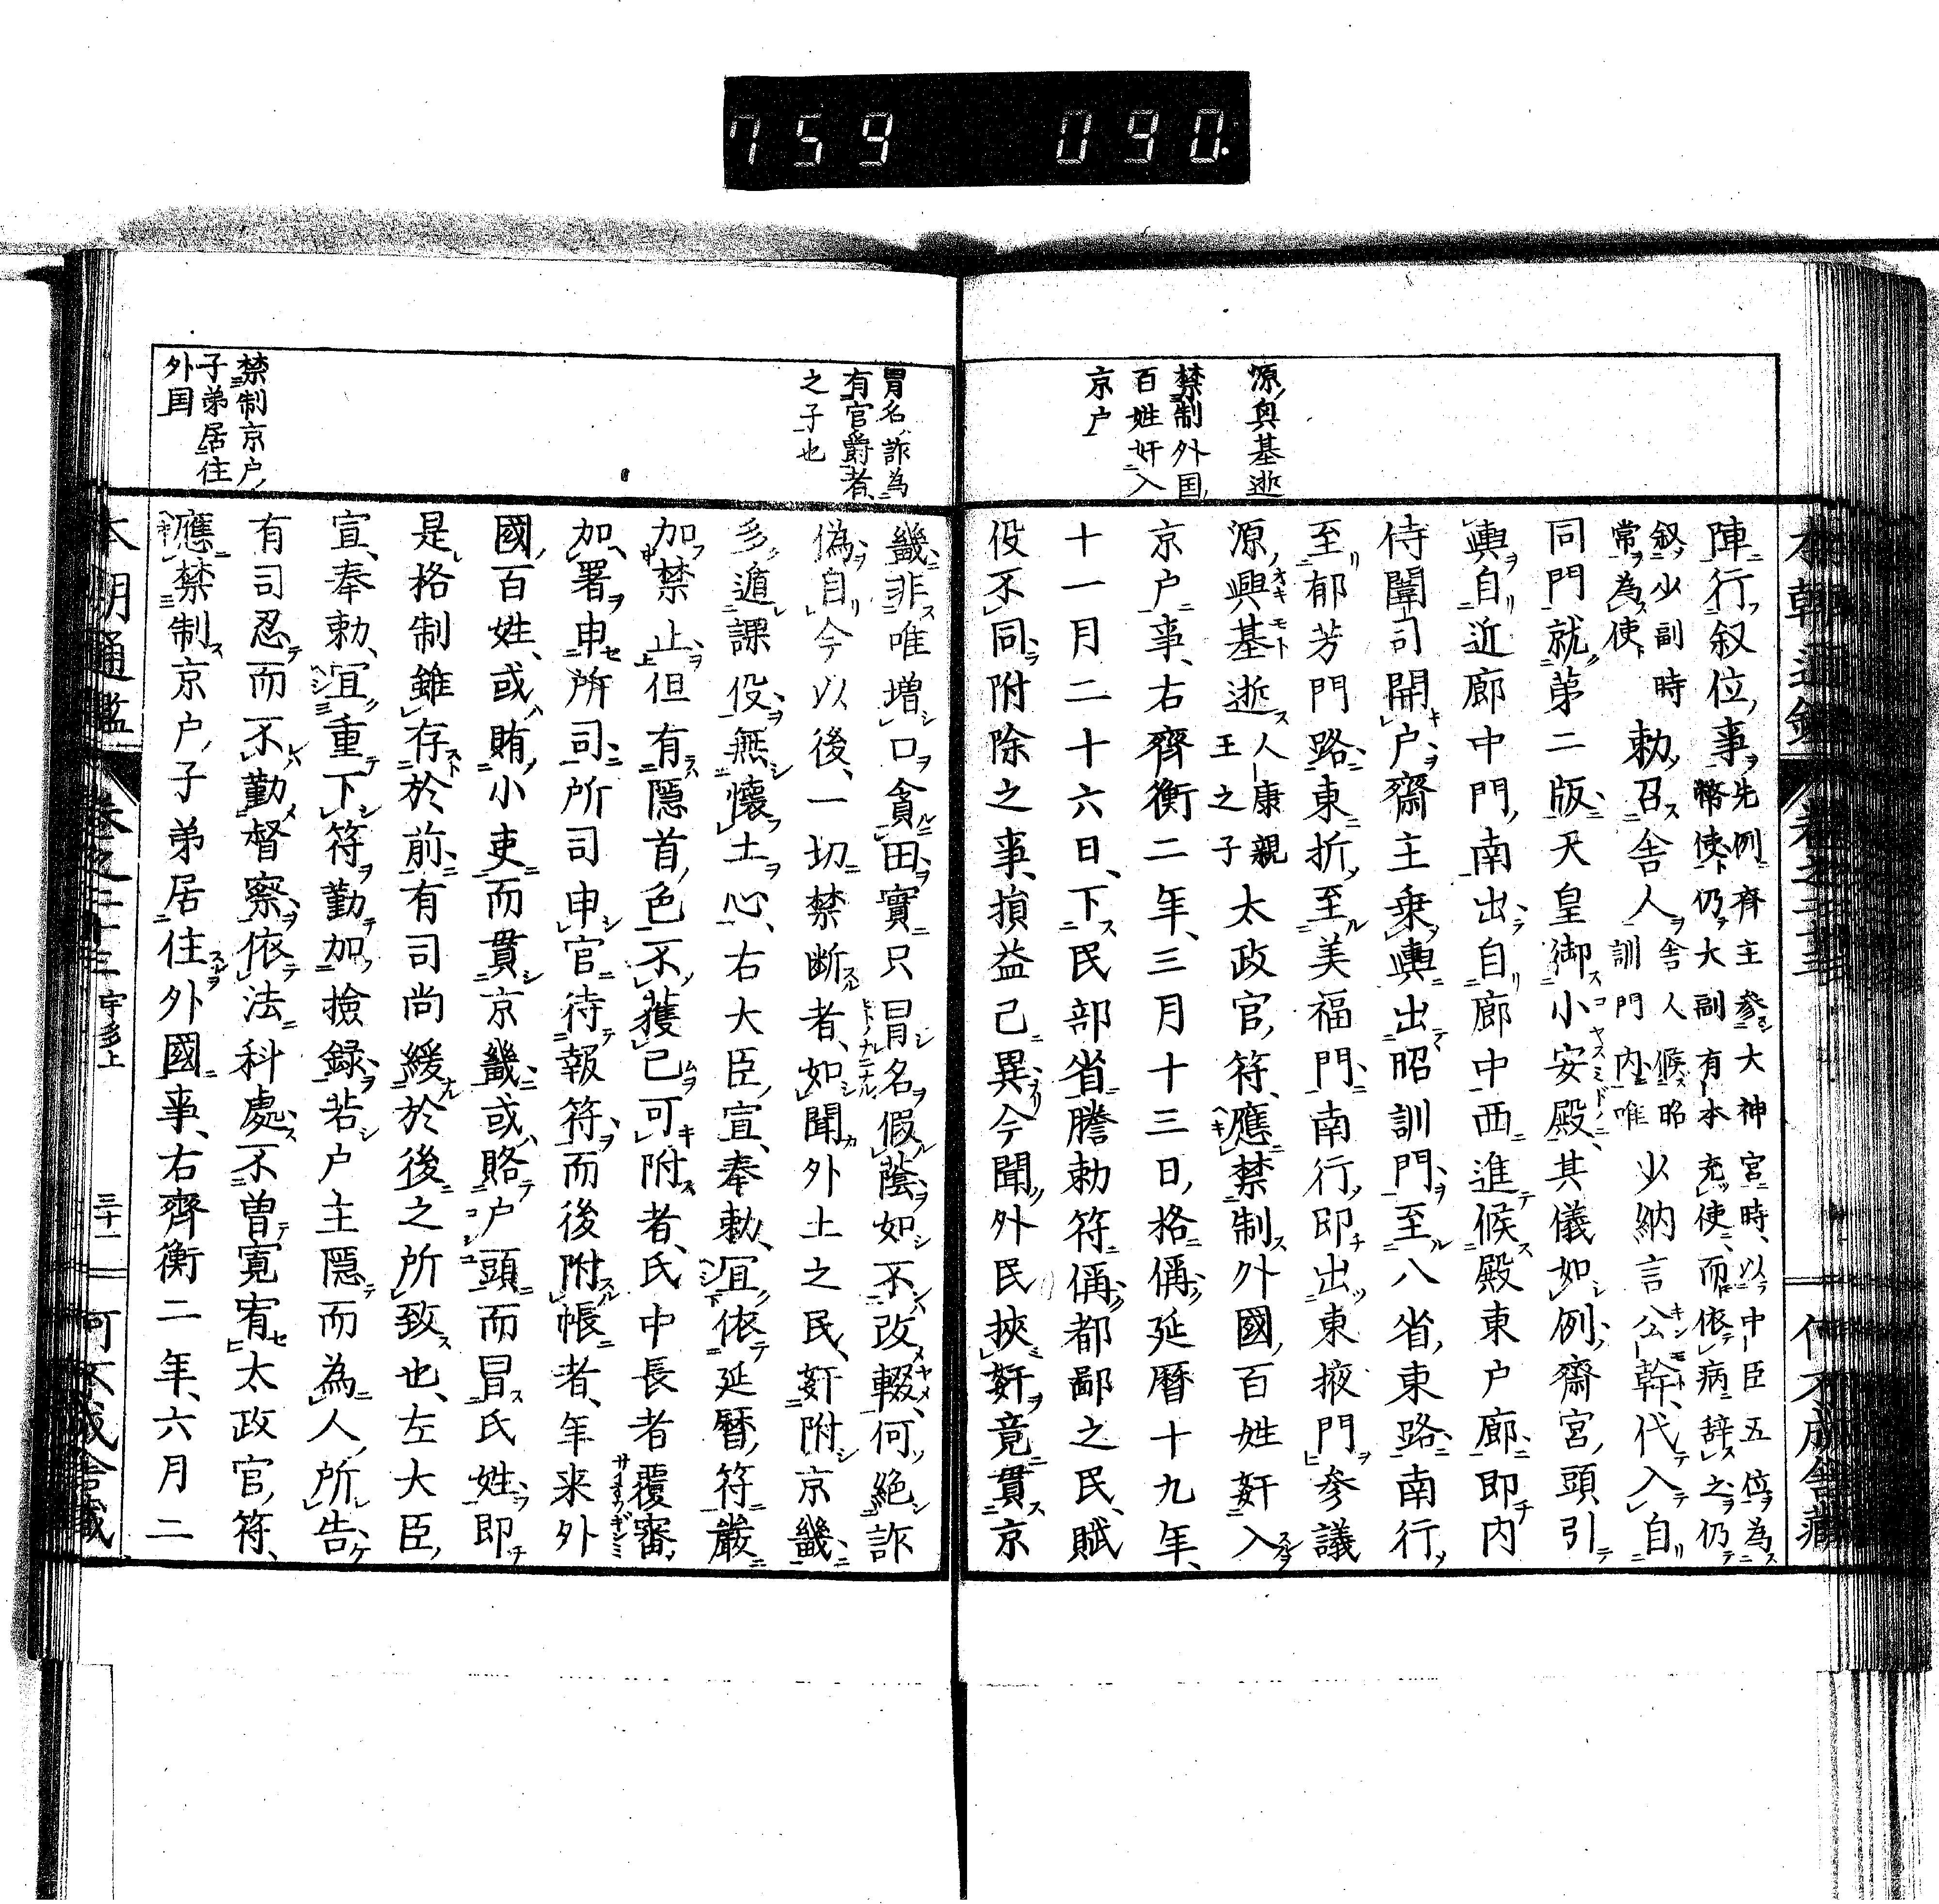 759 090.
源興基逝
禁制外国
百姓奸入
京户
陣行叙位事先例齊主參大神宮時以中臣五位為
幣使仍大副有本充使而依病辞之仍
叙少副時勅召舎人舎人候昭少納言公幹代入自
常為使訓門内唯
同門就第二版天皇御小安殿其儀如例齋宮頭引
輿自近廊中門南出自廊中西進候殿東户廊即内
侍闈司開户齋主乗輿出昭訓門至八省東路南行
至郁芳門路東折至美福門南行即出東掖門参議
源興基逝人康親王之子太政官符應禁制外國百姓姧入
京户事右齊衡二年三月十三日格偁延曆十九年
十一月二十六日下民部省謄勅符偁都鄙之民賦
役不同附除之事損益已異今聞外民挾姧竟貫京
冒名詐為
有官爵者
之子也
禁制京户
子弟居住
外国
畿非唯増口貪田實只冒名假蔭如不改轍何絶詐
偽自今以後一切禁断者如聞外土之民姧附京畿
多遁課役無懐土心右大臣宣奉勅宜依延曆符嚴
加禁止但有隠首色不獲已可附者氏中長者覆審
加署申所司所司申官待報符而後附帳者年来外
國百姓或賄小吏而貫京畿或賂户頭而冒氏姓即
是格制雖存於前有司尚緩於後之所致也左大臣
宣奉勅宜重下符勤加撿録若户主隠而為人所告
有司忍而不勤督察依法科處不曽寛宥太政官符
應禁制京户子弟居住外國事右齊衡二年六月二
本朝通鑑 巻之二十三 宇多上 三十一